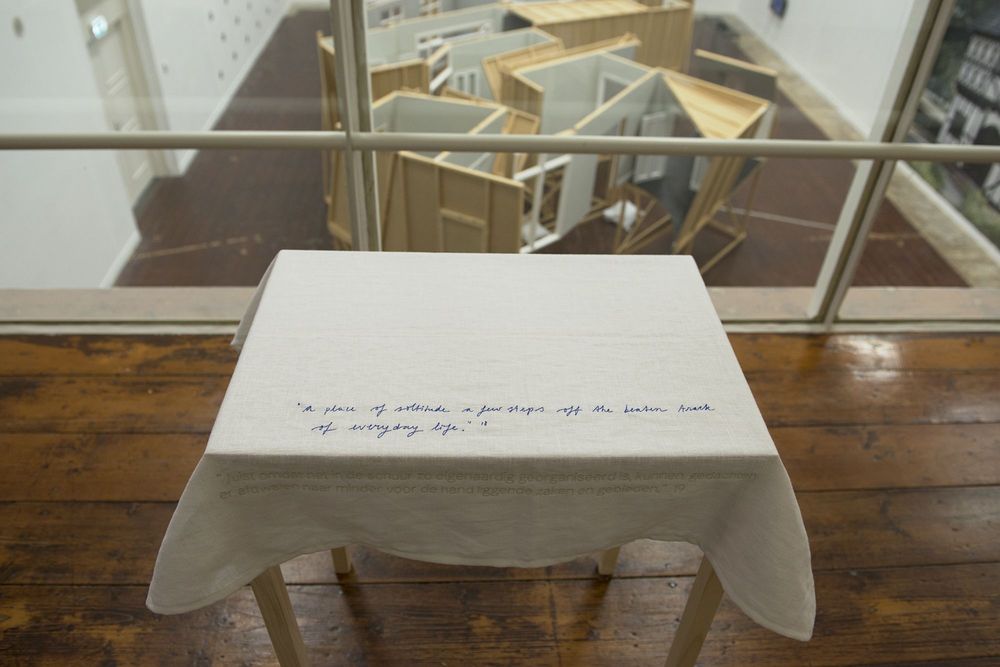 "A place of soltitude a few steps off the beaten track
of everyday life." 18
"Juist omdat het in de schuur zo eigenaardig georganiseerd is, kunnen gedachten
er afdwalen naar minder voor de hand liggende zaken en gebieden." 19